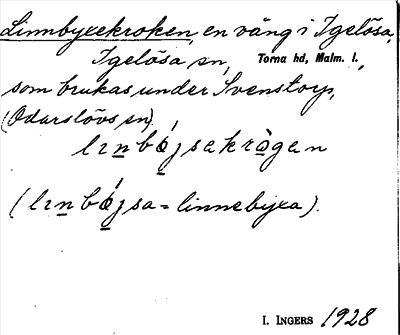 Linnbyxekroken, en väng i Igelösa,
Igelösa sn, Torna hd, Malm. l.,
som brukas under Svenstorp,
(Odarslövs sn).
lɪnbǿjsakrågan
(lɪnbǿjsa = linnebyxa).
I. INGERS 1928